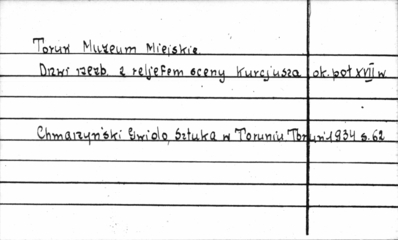 Toruń Muzeum Miejskie.
Drzwi rzeźb. z reljefem sceny Kurcjusza ok. poł XVII w
Chmarzyński Gwido, Sztuka w Toruniu Toruń 1934 s. 62